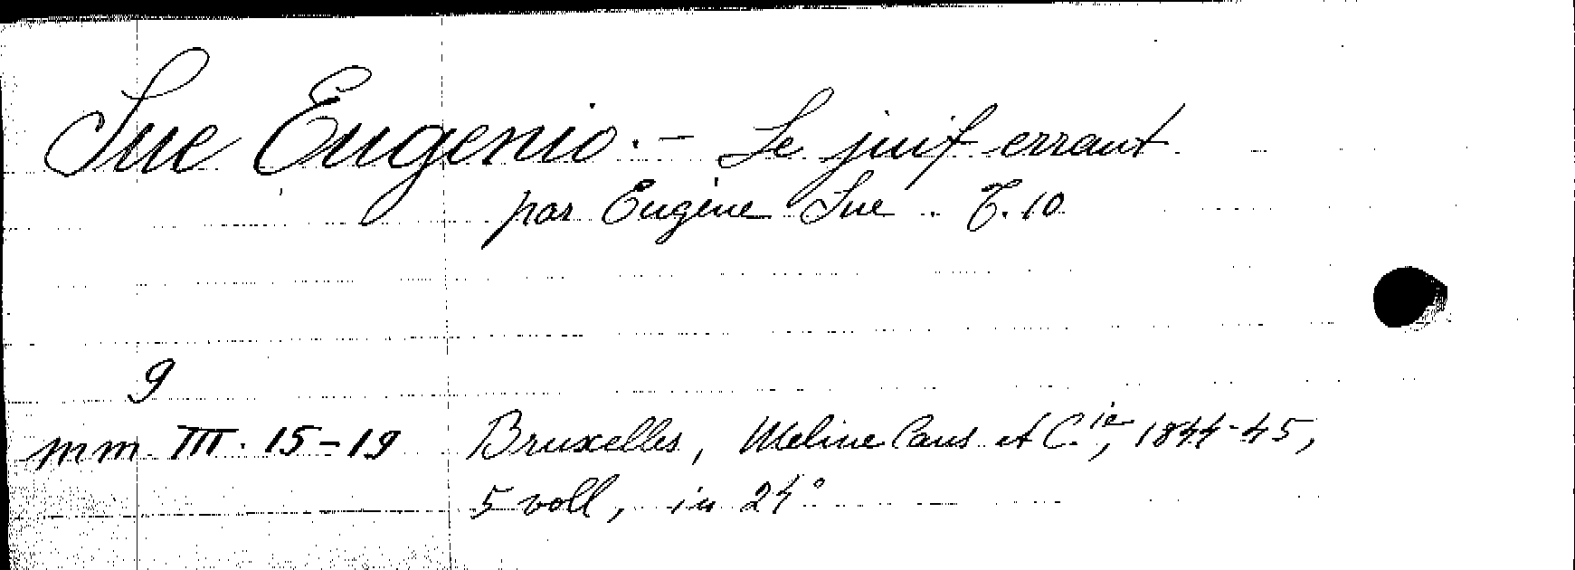 Sue Eugenio. - Le juif errant
par Eugène Sue .. T. 10
9
mm. III. 15-19 Bruxelles, Meline Cans et C.ie, 1844-45,
5 voll, in 24°